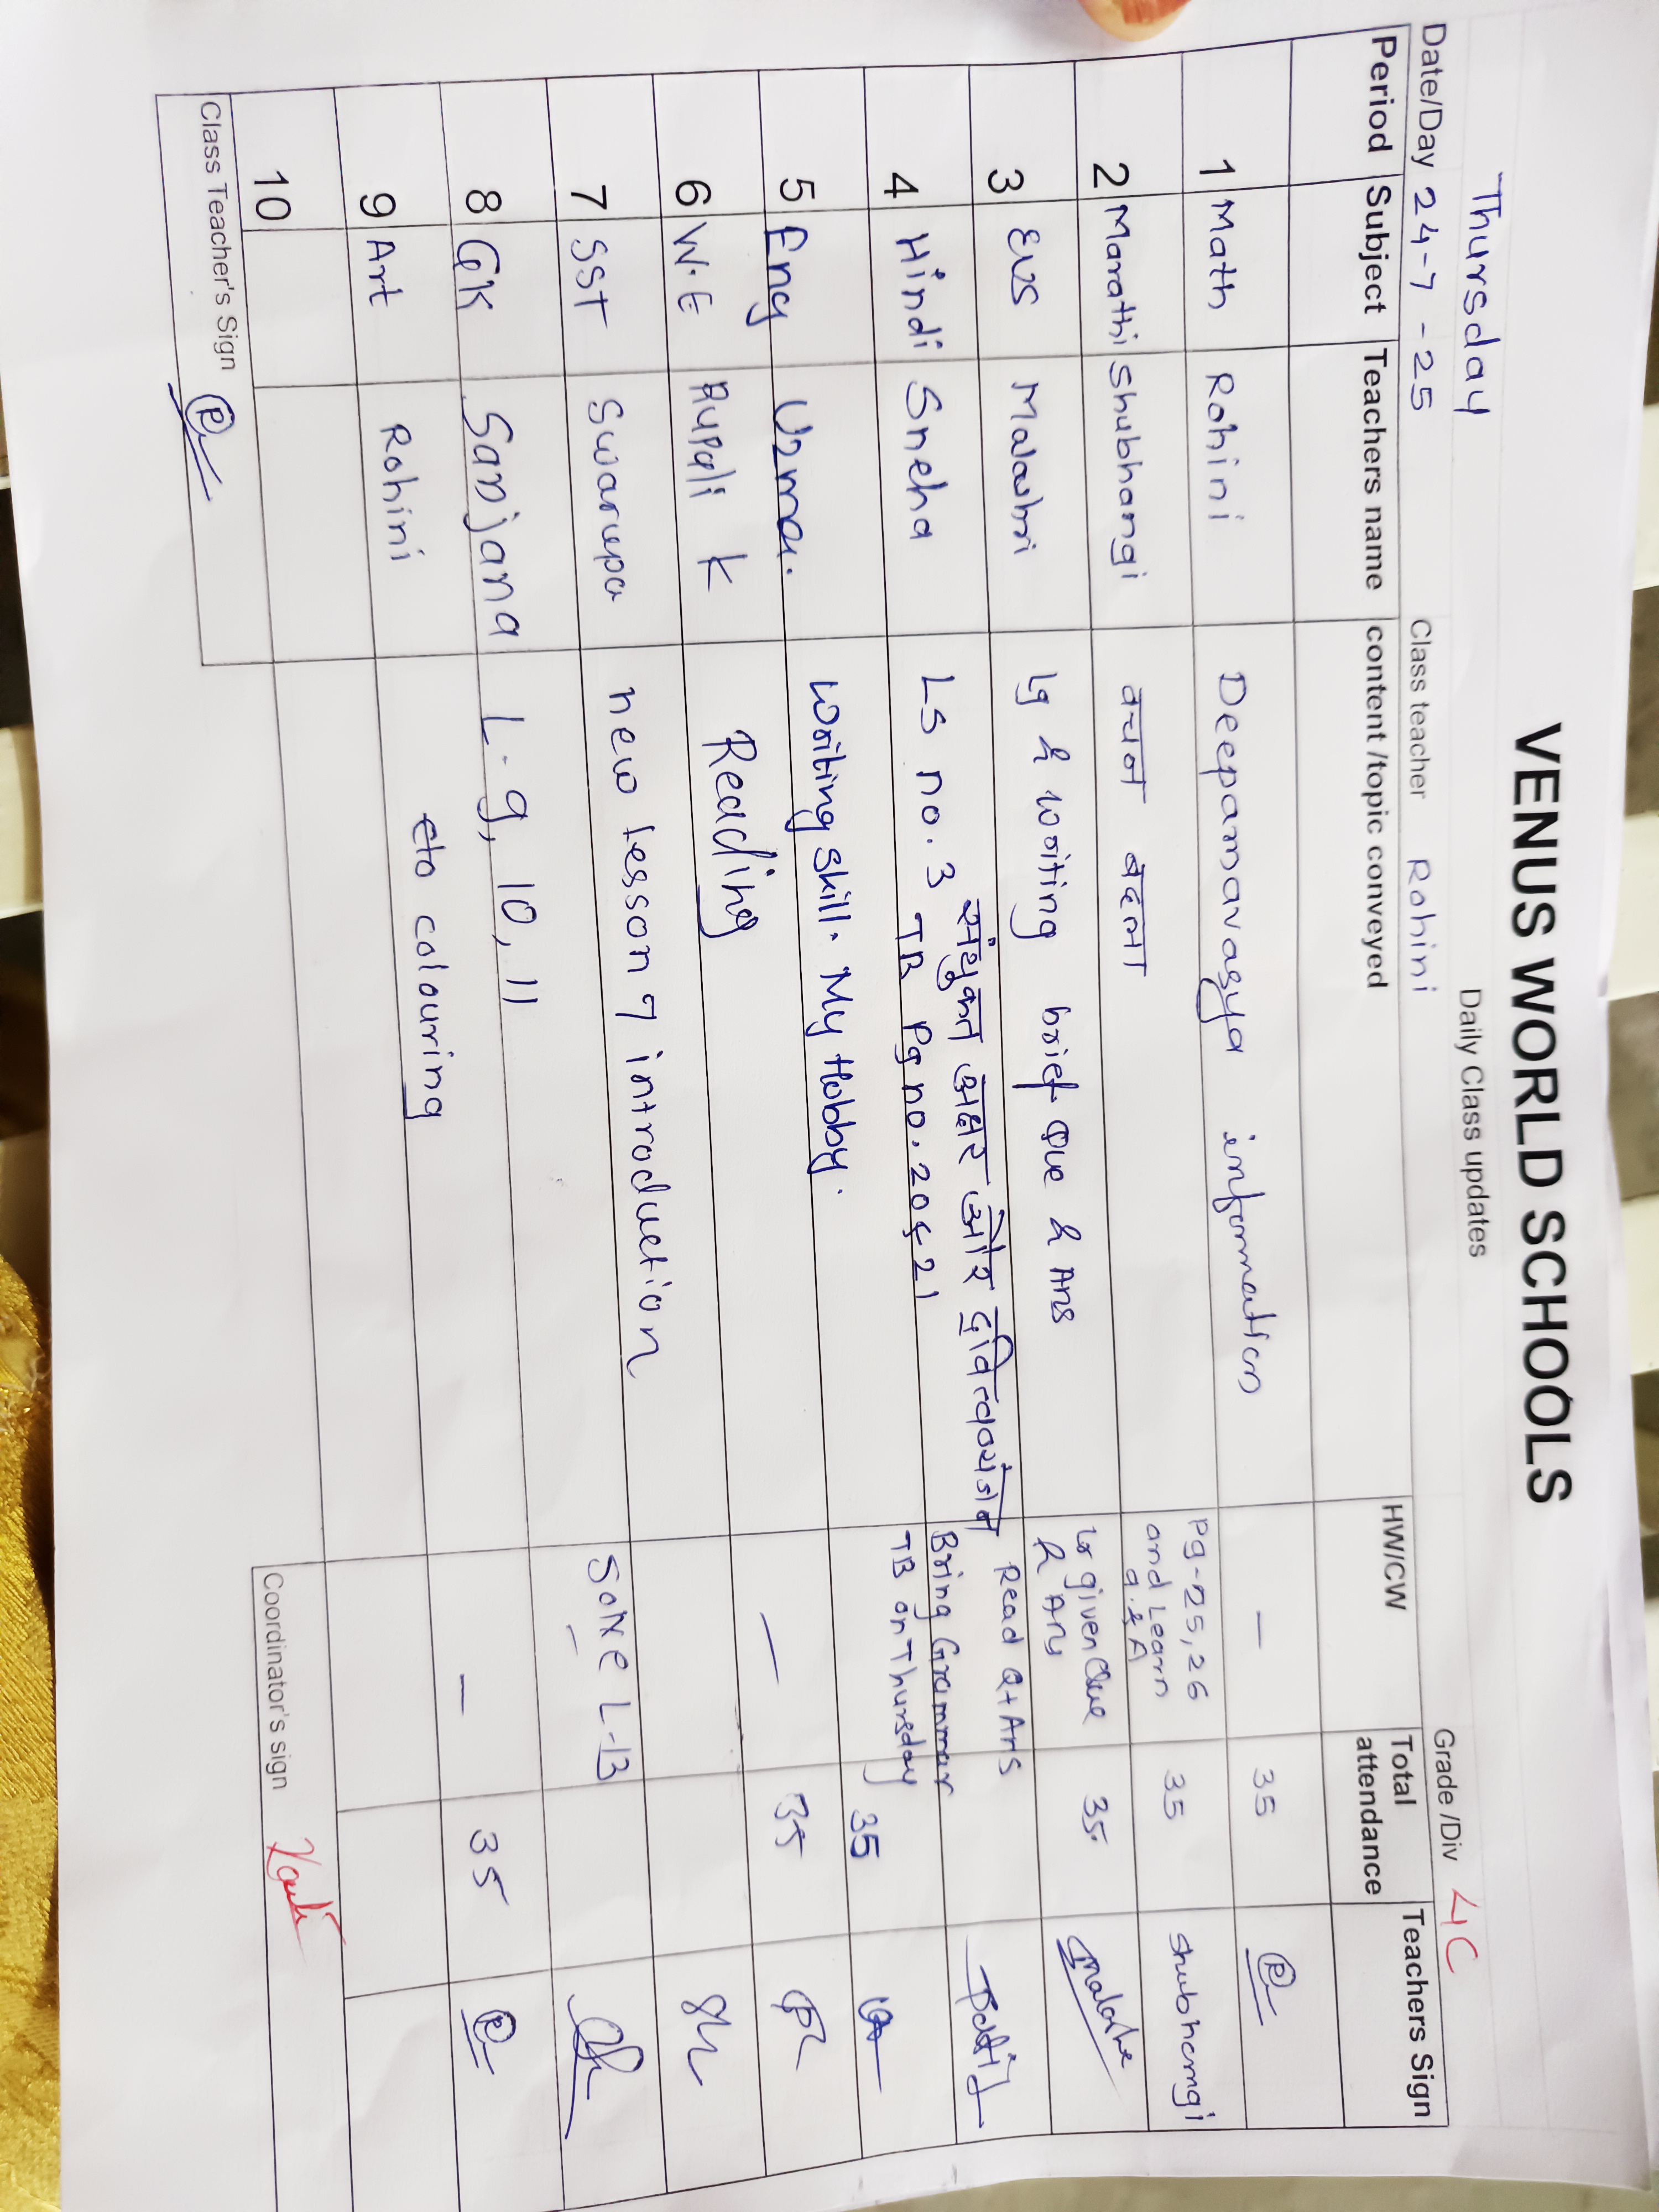 VENUS WORLD SCHOOLS
Thursday
Daily Class updates
Date/Day 24-7-25 Class teacher Rohini Grade /Div 4C
Period Subject Teachers name content /topic conveyed HW/CW Total attendance Teachers Sign
1 Math Rohini Deepamavasya information — 35
2 Marathi Shubhangi वचन बदला Pg-25,26 35 Shubhangi
and Learn
Q.&A
3 EVS brief Que & Ans given Que 35
& Ans
4 Hindi Sneha संयुक्त अक्षर और Read Q+Ans Patil
Ls no. 3 TB Pg no. 20 & 21 Bring Grammar
TB on Thursday
5 Eng Uzma. Writing skill. My Hobby. 35
6 W.E Rupali K Reading — 35
7 SST Swarupa new lesson 7 introduction
8 GK Sanjana L-9, 10, 11 Solve L-13
9 Art Rohini colouring — 35
10
Class Teacher's Sign Coordinator's sign